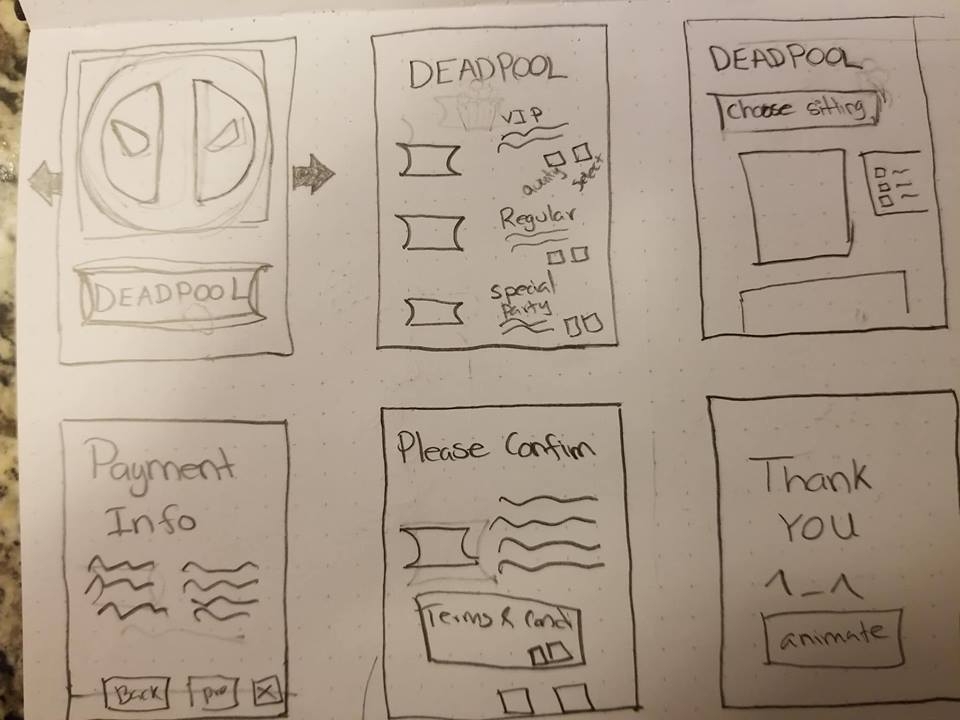 DEADPOOL
DEADPOOL
VIP
select
Regular
Special
Party
DEADPOOL
Choose sitting
Payment
Info
Back
Pro
X
Please Confim
Terms & Cond
Thank
YOU
^_^
animate